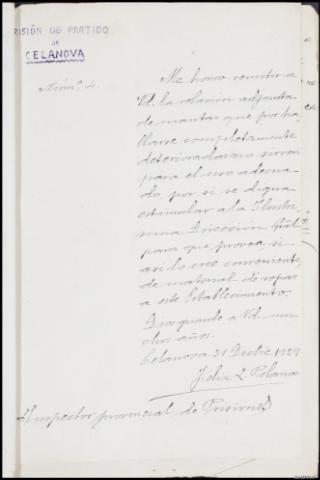 PRISIÓN DE PARTIDO
DE
CELANOVA
Núm.º 4.
Me honro remitir a
Vd. la relación adjunta
de mantas que por ha-
llarse completamente
deterioradas no sirven
para el uso adecua-
do, por si se digna
estimular a la Ilustrí-
sima Dirección Gral.
para que provea, si
así lo cree conveniente,
de material de ropas
a este Establecimiento.
Dios guarde a Vd. mu-
chos años.
Celanova 31 Dicbre 1929
Felix L.
Inspector provincial de Prisiones